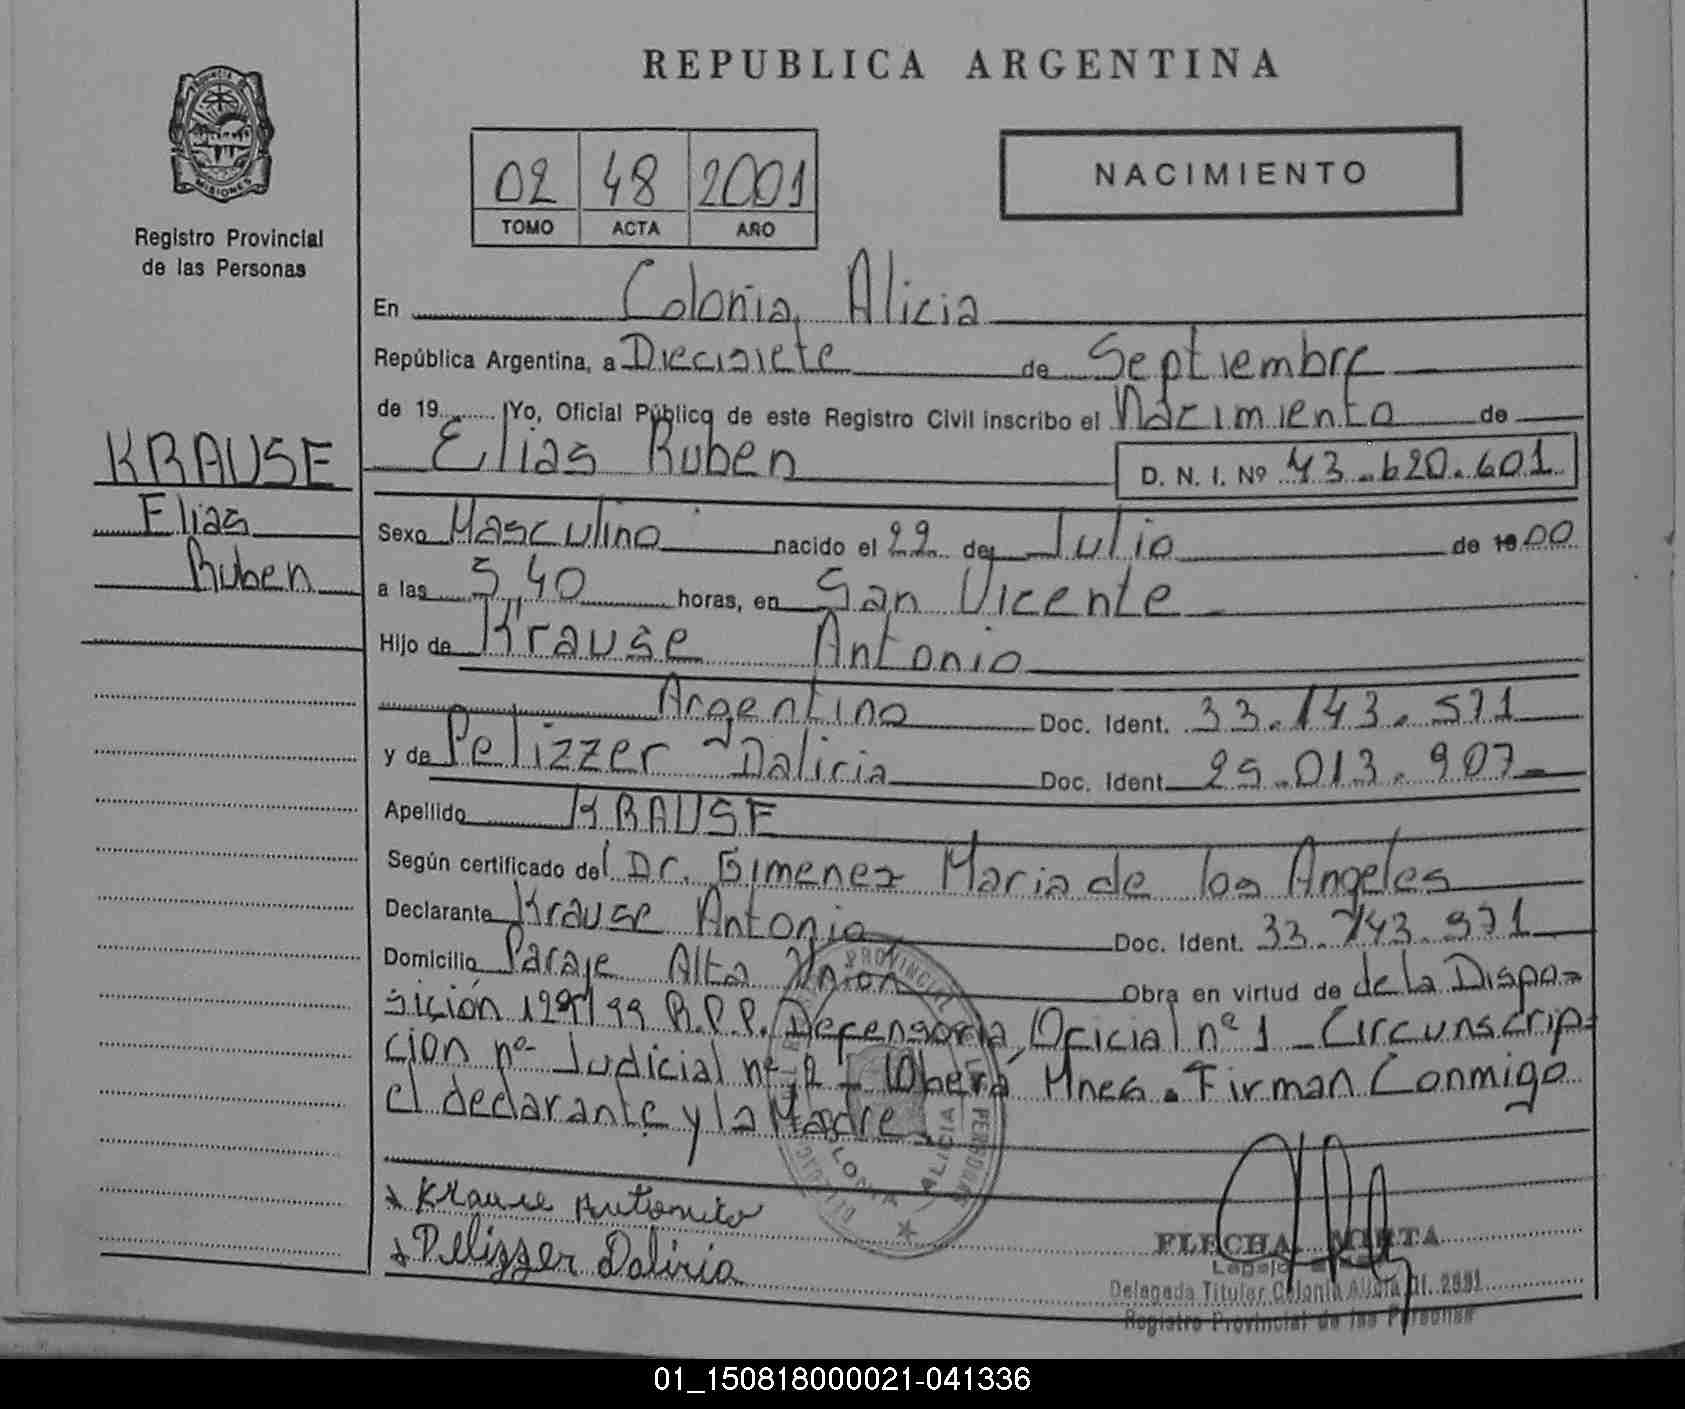 REPUBLICA ARGENTINA
PROVINCIA DE
MISIONES
Registro Provincial
de las Personas
02 48 2001
TOMO ACTA AÑO
NACIMIENTO
En Colonia Alicia
República Argentina, a Diecisiete de Septiembre
de 19 Yo, Oficial Público de este Registro Civil inscribo el Nacimiento de
Elias Ruben D. N. I. Nº 43.620.601
KRAUSE
Elias
Ruben
Sexo Masculino nacido el 22 de Julio de 19 00
a las 5,40 horas, en San Vicente
Hijo de Krause Antonio
Argentino Doc. Ident. 33.143.571
y de Pelizzer Daliria Doc. Ident. 25.013.907
Apellido KRAUSE
Según certificado del Dr. Gimenez Maria de los Angeles
Declarante Krause Antonio Doc. Ident. 33.143.571
Domicilio Paraje Alta Union Obra en virtud de de la Dispo-
sición 129/99 R.P.P. Defensoria Oficial nº 1 Circunscrip-
cion nº Judicial nº 2 - Obera Mnes. Firman Conmigo
el declarante y la Madre
x Krause Antonito
x Pelizzer Daliria
COLONIA ALICIA
FLECHA MIRTA
Delegada Titular Colonia Alicia Of. 2691
Registro Provincial de las Personas
01_150818000021-041336